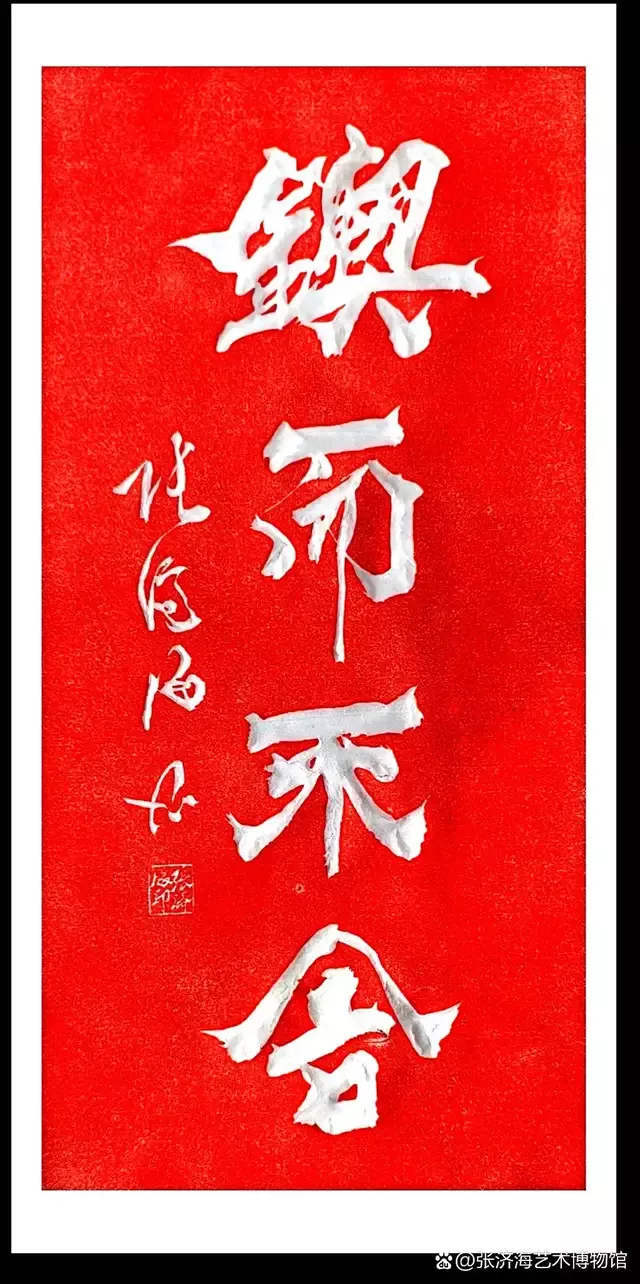 鍥而不舍
张济海书
张济海印
@张济海艺术博物馆